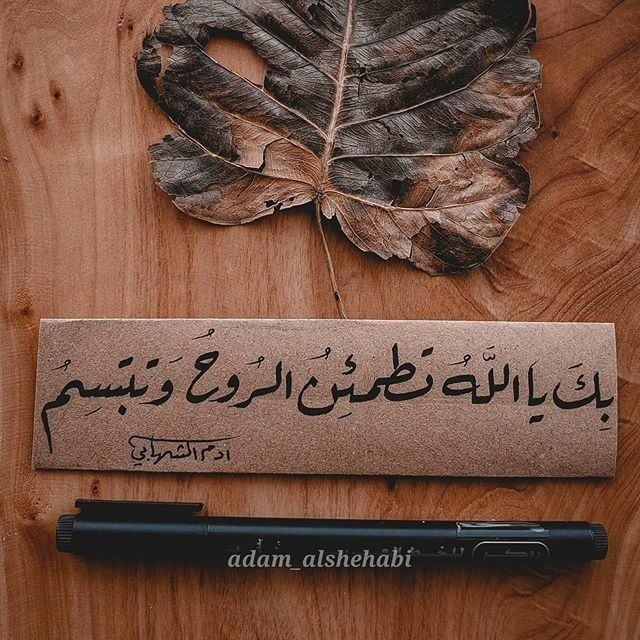 بِكَ يَا اللَّهُ تطمئِنُ الرُوحُ وَتبتسِمُ
ادم الشهابي
للخط
adam_alshehabi